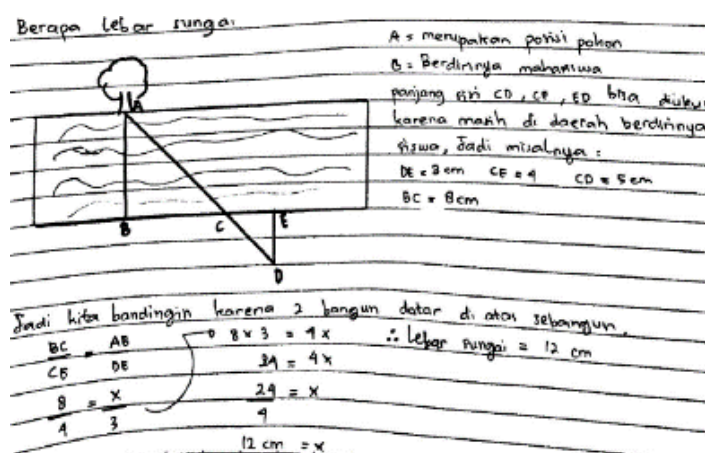 Berapa lebar sungai
A = merupakan posisi pohon
B = Berdirinya mahasiswa
panjang sisi CD, CE, ED bisa diukur
karena masih di daerah berdirinya
siswa, Jadi misalnya :
DE = 3 cm CE = 4 CD = 5 cm
BC = 8 cm
A
B C E
D
Jadi kita bandingin karena 2 bangun datar di atas sebangun.
BC/CE = AB/DE
8/4 = x/3
8 x 3 = 4x
24 = 4x
24/4 = x
12 cm = x
∴ Lebar sungai = 12 cm